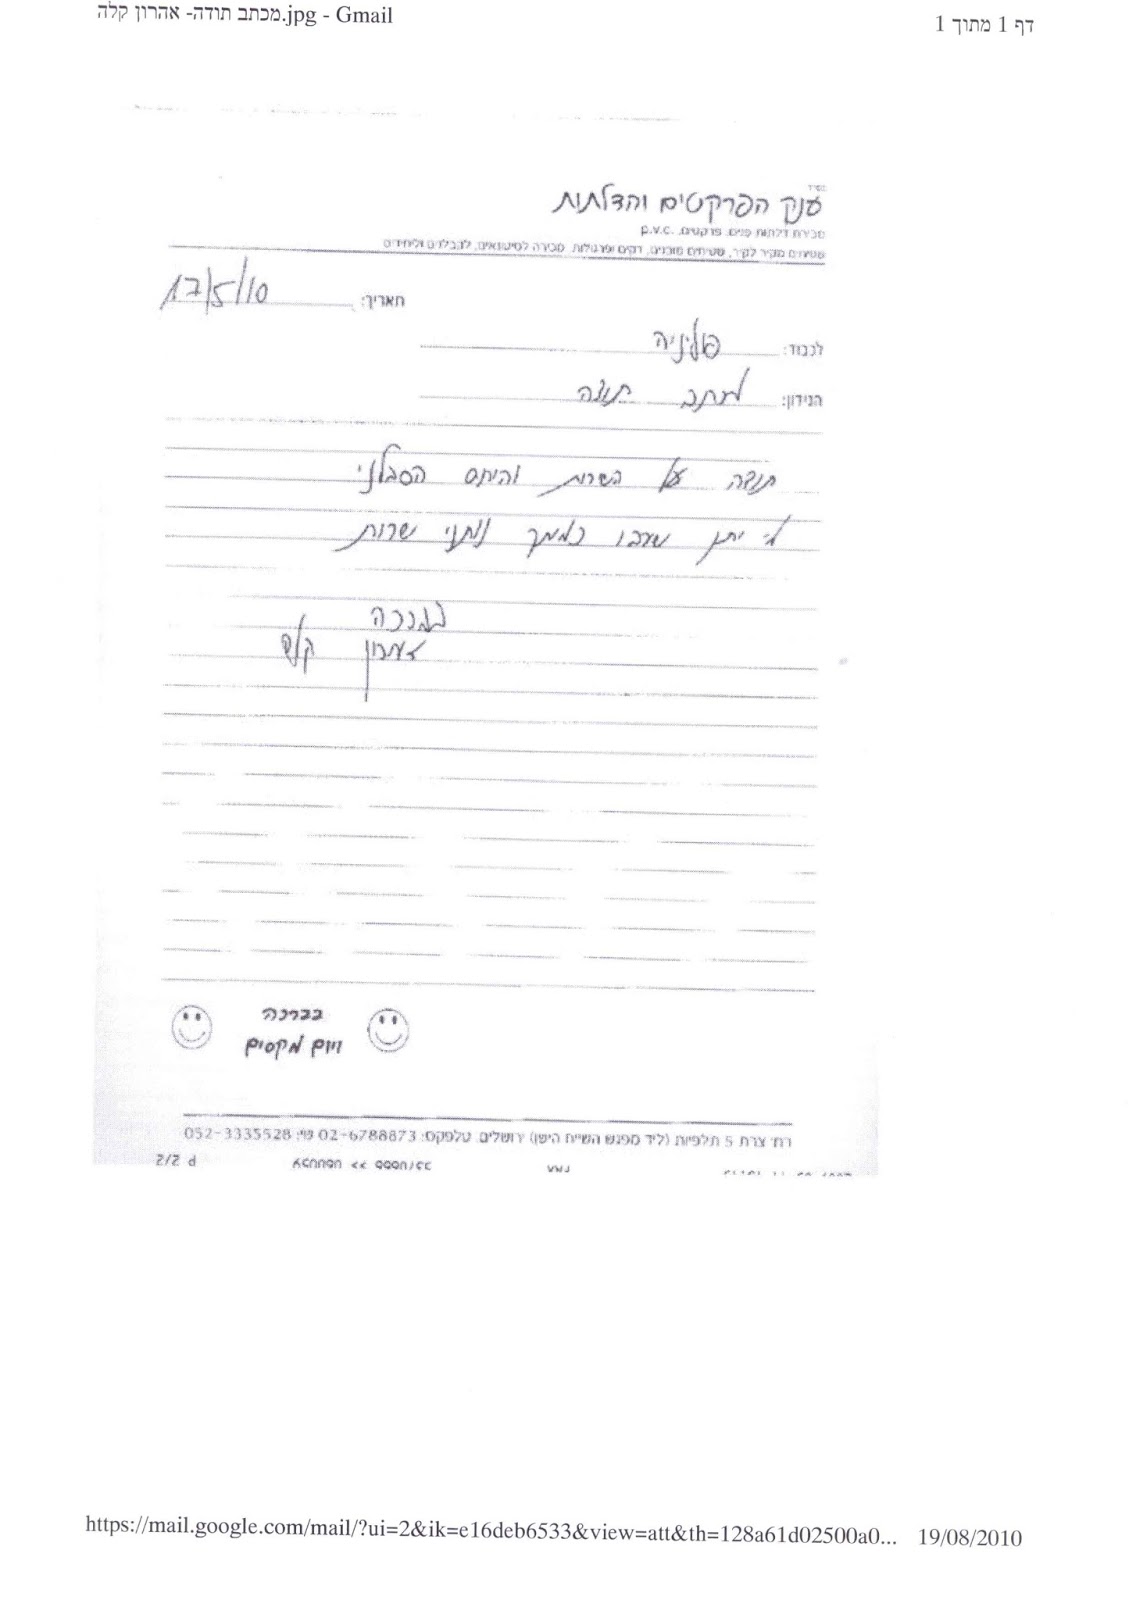 מכתב תודה- אהרון קלה.jpg - Gmail
דף 1 מתוך 1
משרד
ענק הפרקטים והדלתות
מכירת דלתות פנים, פרקטים, p.v.c.
שטיחים מקיר לקיר, שטיחים מוכנים, דקים ופרגולות. מכירה לסיטונאים, לקבלנים וליחידים
תאריך:
לכבוד: פוליניה
הנידון: מכתב תודה
תודה על השרות והיחס הסבלני
מי יתן שירבו כמוך נותני שרות
בברכה
אהרון קלה
בברכה
ויום מקסים
רח' צרת 5 תלפיות (ליד מפגש השייח הישן) ירושלים. טלפקס: 02-6788873 פל: 052-3335528
P 2/2
https://mail.google.com/mail/?ui=2&ik=e16deb6533&view=att&th=128a61d02500a0... 19/08/2010